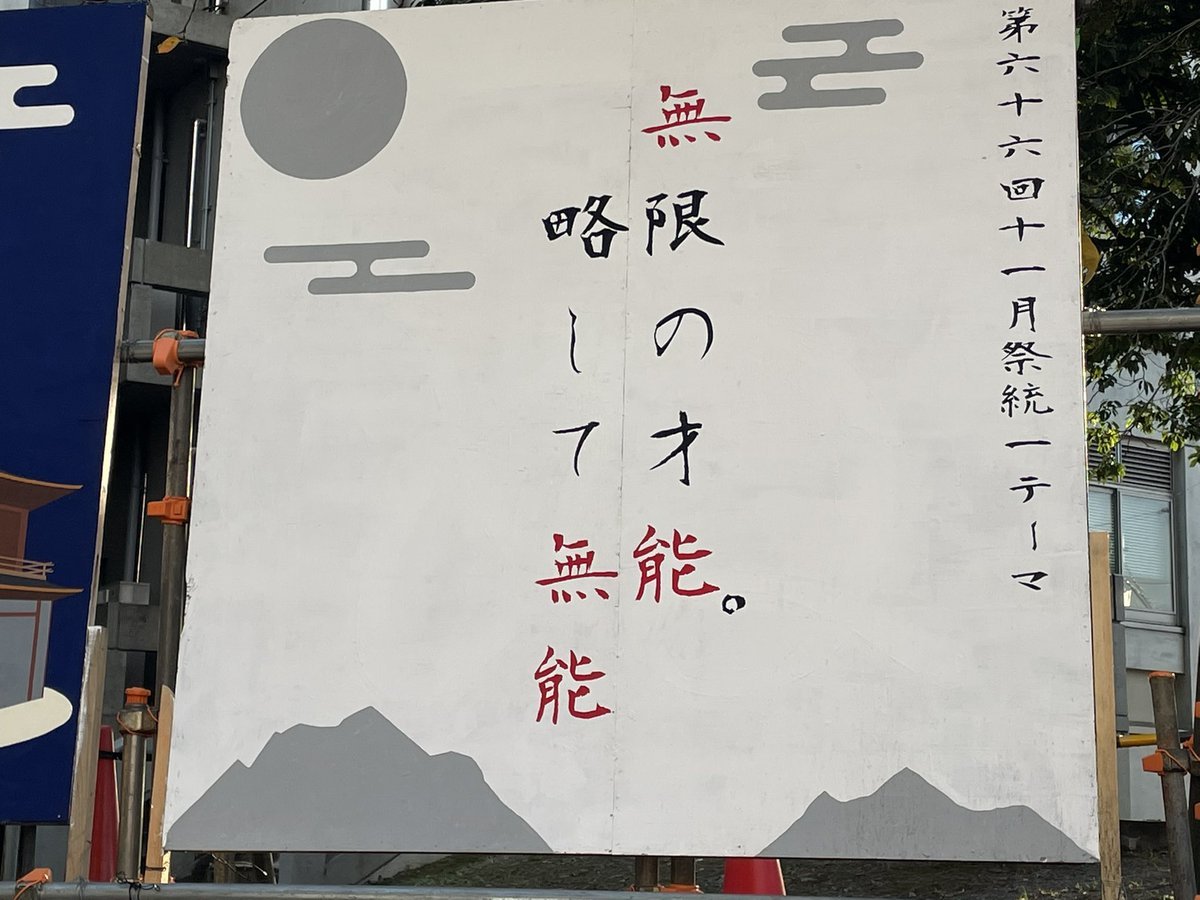 第六十六回十一月祭統一テーマ
無限の才能。
略して無能